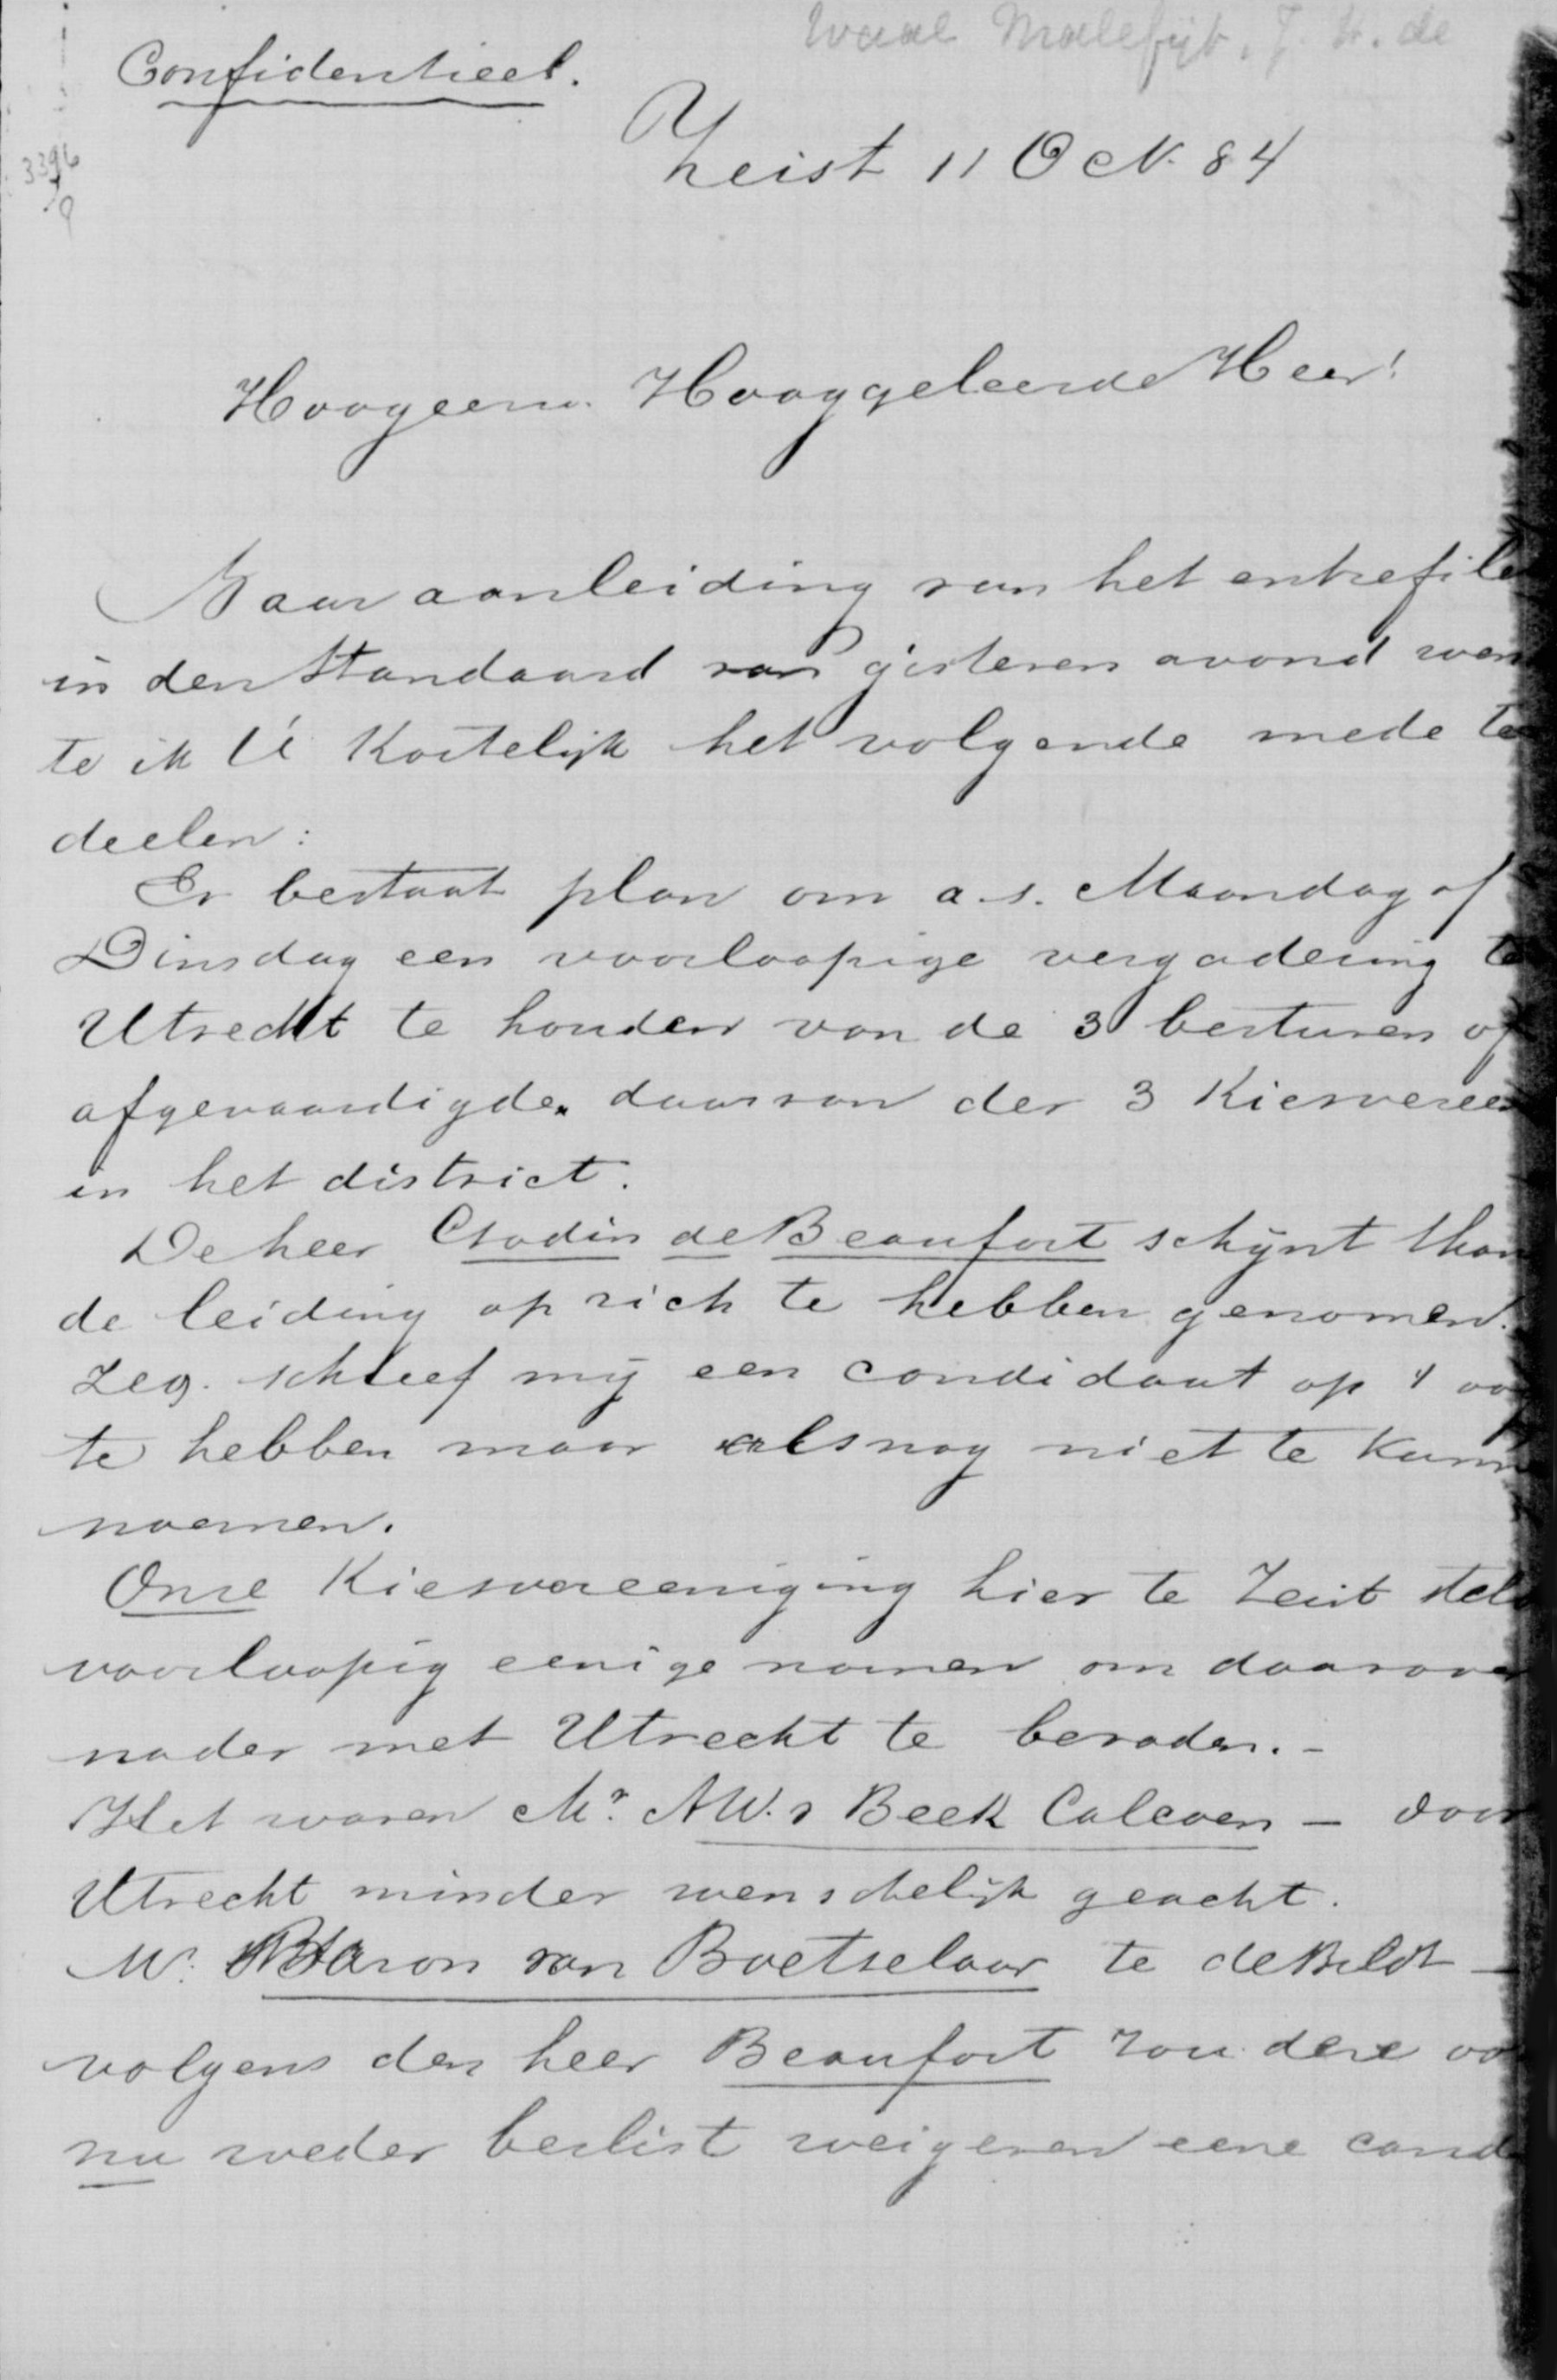 Waal Malefijt, J. H. de
Confidentieel.
3396
Zeist 11 Oct. 84
Hoogeerw. Hooggeleerde Heer!
Naar aanleiding van het entrefile
in den Standaard van gisteren avond wen
te ik U kortelijk het volgende mede te
deelen:
Er bestaat plan om a.s. Maandag of
Dinsdag een voorloopige vergadering te
Utrecht te houden van de 3 besturen of
afgevaardigden daarvan der 3 Kiesvereen
in het district.
De heer Godin de Beaufort schijnt than
de leiding op zich te hebben genomen.
ZEg. schreef mij een candidaat op 't oog
te hebben maar alsnog niet te kunn
noemen.
Onze Kiesvereeniging hier te Zeist stel
voorloopig eenige namen om daarove
nader met Utrecht te beraden. -
Het waren Mr. AW. v Beek Calcoen - door
Utrecht minder wenschelijk geacht.
Mr. Baron van Boetselaar te de Bildt -
volgens den heer Beaufort zou deze oo
nu weder beslist weigeren eene cand